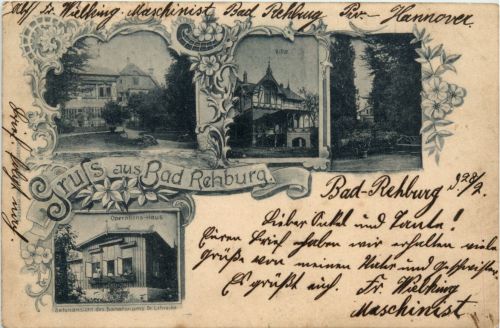 Abs. Fr. Wülbking. Maschinist Bad Rehburg Prv.- Hannover.
Villa
Gruss aus Bad Rehburg.
Operations-Haus
Seitenansicht des Sanatoriums Dr. Lehrecke
Bad-Rehburg d. 28/2.
Lieber Onkel und Tante!
Euren Brief haben wir erhalten viele
grüße von meinen Vater und Geschwister
Es grüßt auch. Fr Wülbking
Maschinist